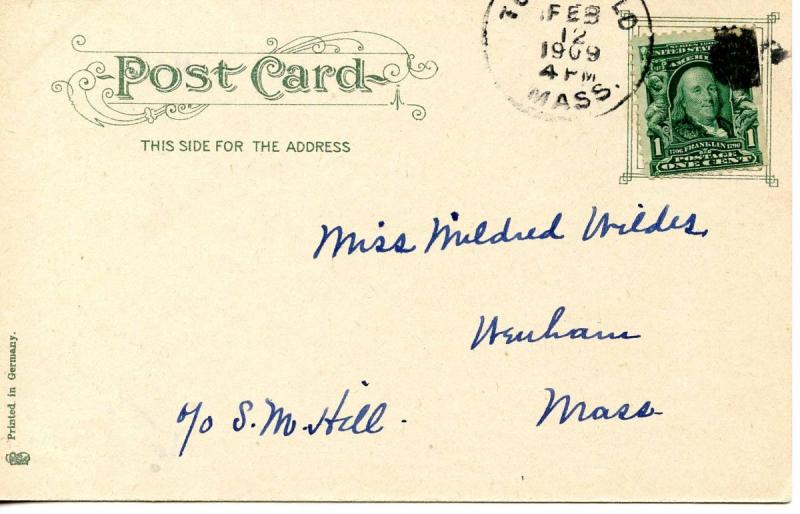 Post Card
THIS SIDE FOR THE ADDRESS
FEB
12
1909
4 PM
MASS.
UNITED STATES
AMERICA
1 1706 FRANKLIN 1790 1
POSTAGE
ONE CENT
Miss Mildred Wildes,
Wenham
Mass
c/o S. M. Hill.
Printed in Germany.